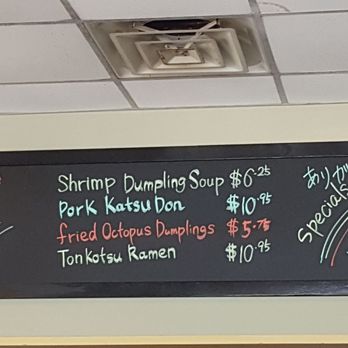 Shrimp Dumpling Soup $6.25
Pork Katsu Don $10.95
fried Octopus Dumplings $5.75
Tonkotsu Ramen $10.95
ありが
Specials